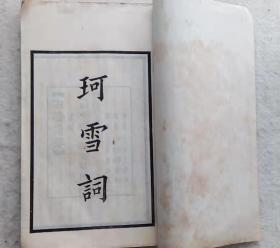 珂雪詞